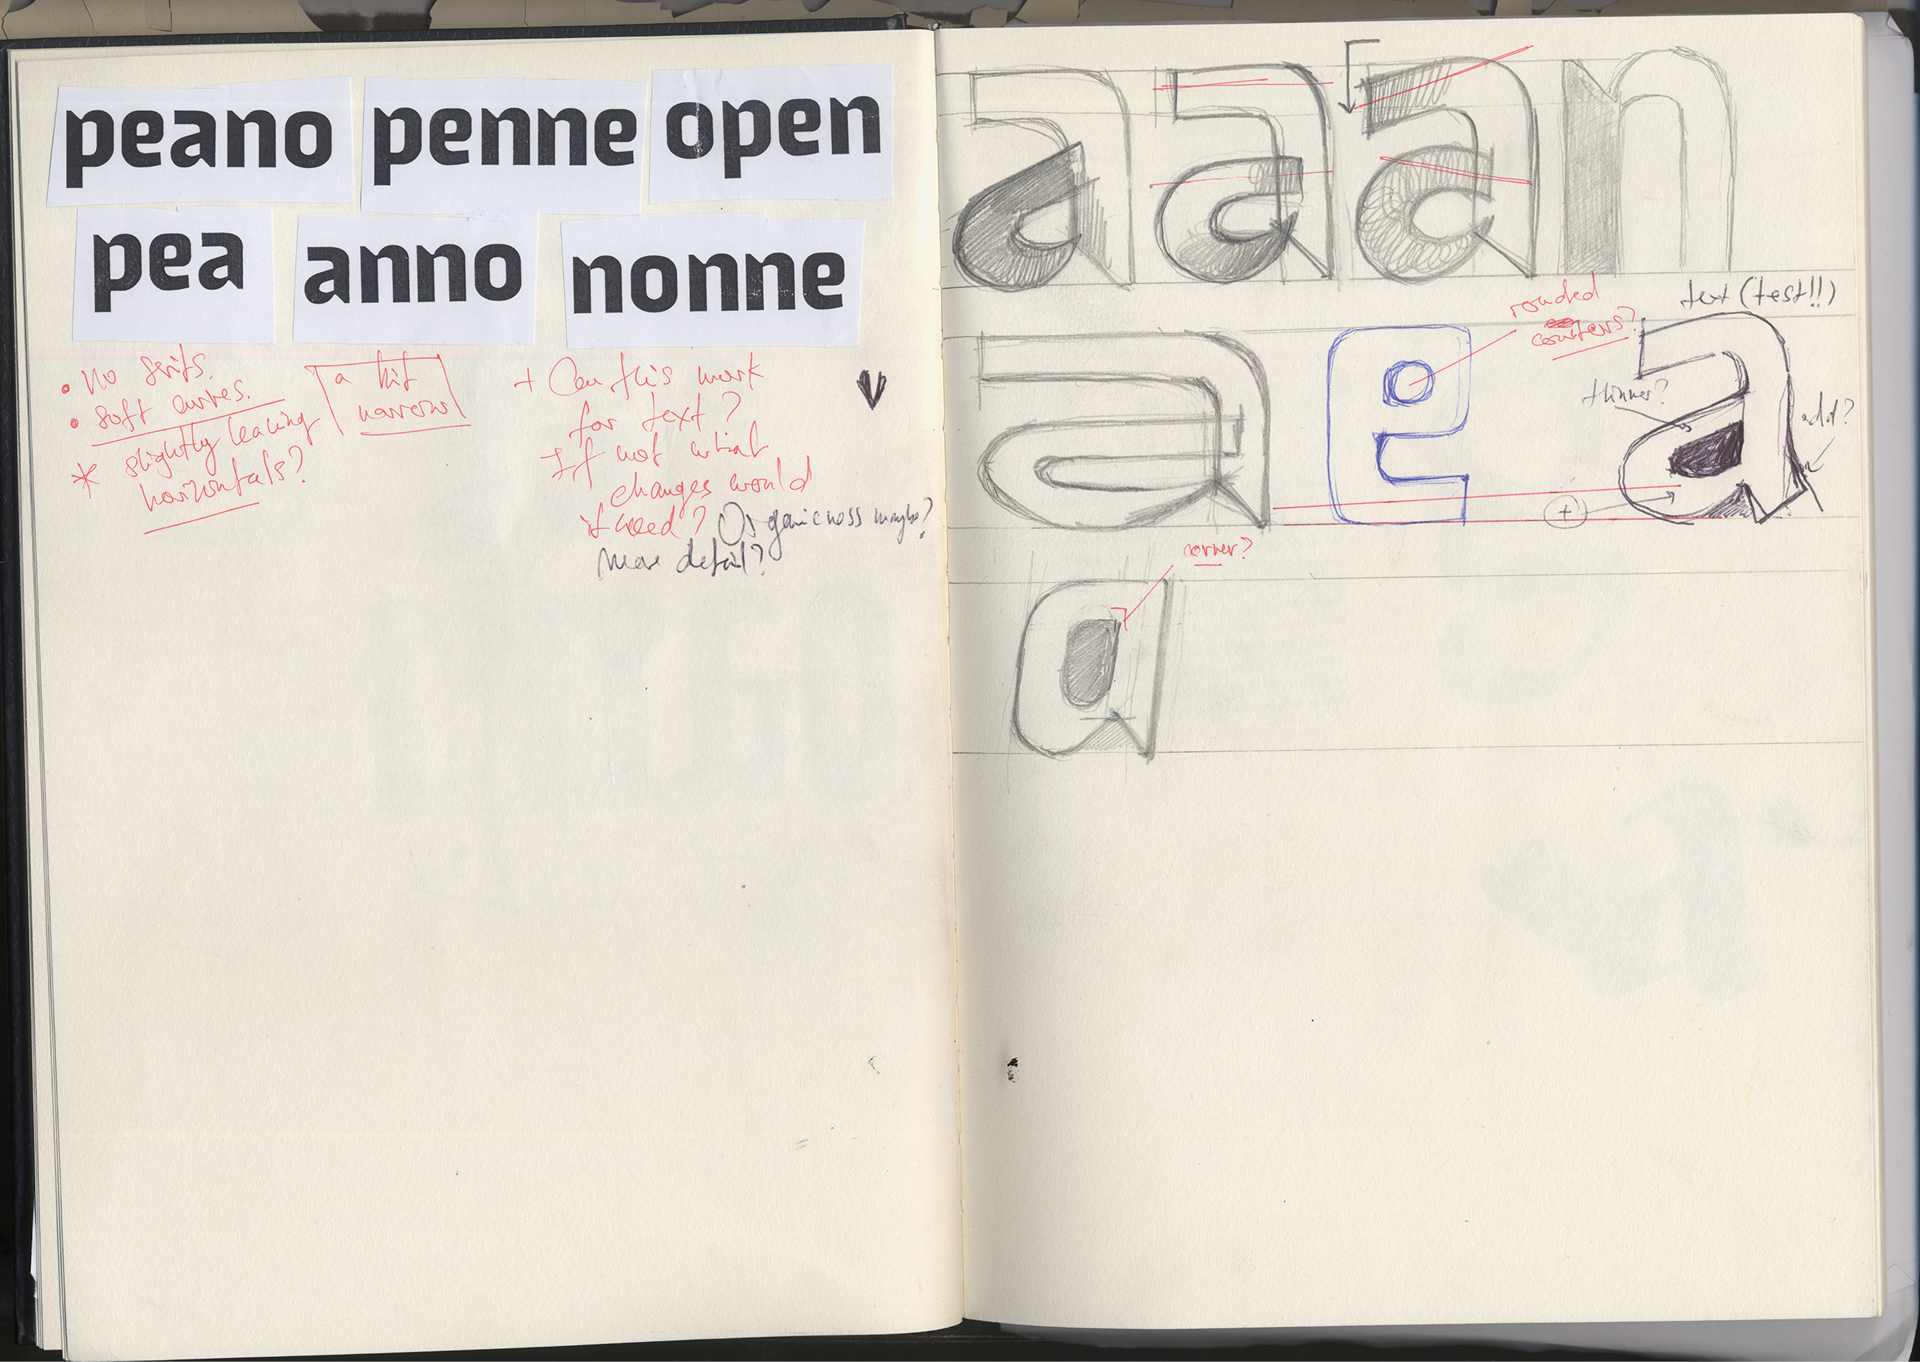 peano penne open
pea anno nonne
• no serifs.
• soft curves.
* slightly leaning
horizontals?
a bit
narrow
+ Can this work
for text?
If not what
changes would
it need? Organicness maybe?
More detail?
a a a n
text (test!!)
rounded
counters?
a e a
thinner?
add?
+
corner?
a